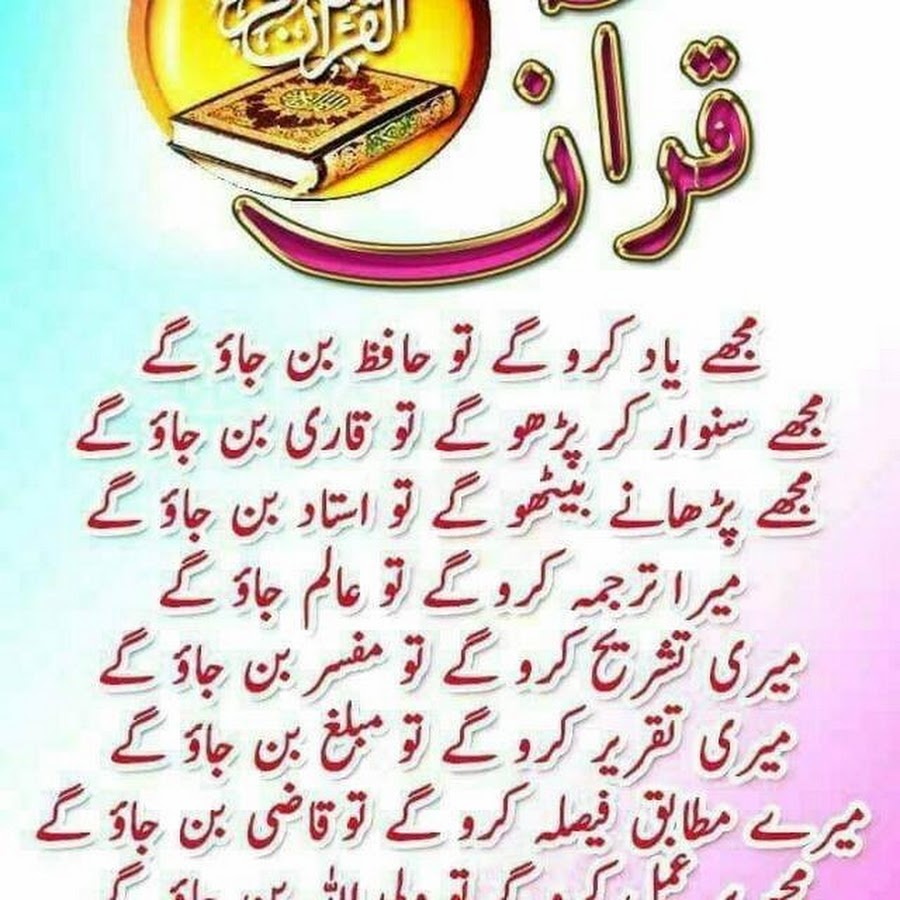 القرآن
قرآن
مجھے یاد کرو گے تو حافظ بن جاؤ گے
مجھے سنوار کر پڑھو گے تو قاری بن جاؤ گے
مجھے پڑھانے بیٹھو گے تو استاد بن جاؤ گے
میرا ترجمہ کرو گے تو عالم جاؤ گے
میری تشریح کرو گے تو مفسر بن جاؤ گے
میری تقریر کرو گے تو مبلغ بن جاؤ گے
میرے مطابق فیصلہ کرو گے تو قاضی بن جاؤ گے
مجھ پر عمل کرو گے تو ولی اللہ بن جاؤ گے